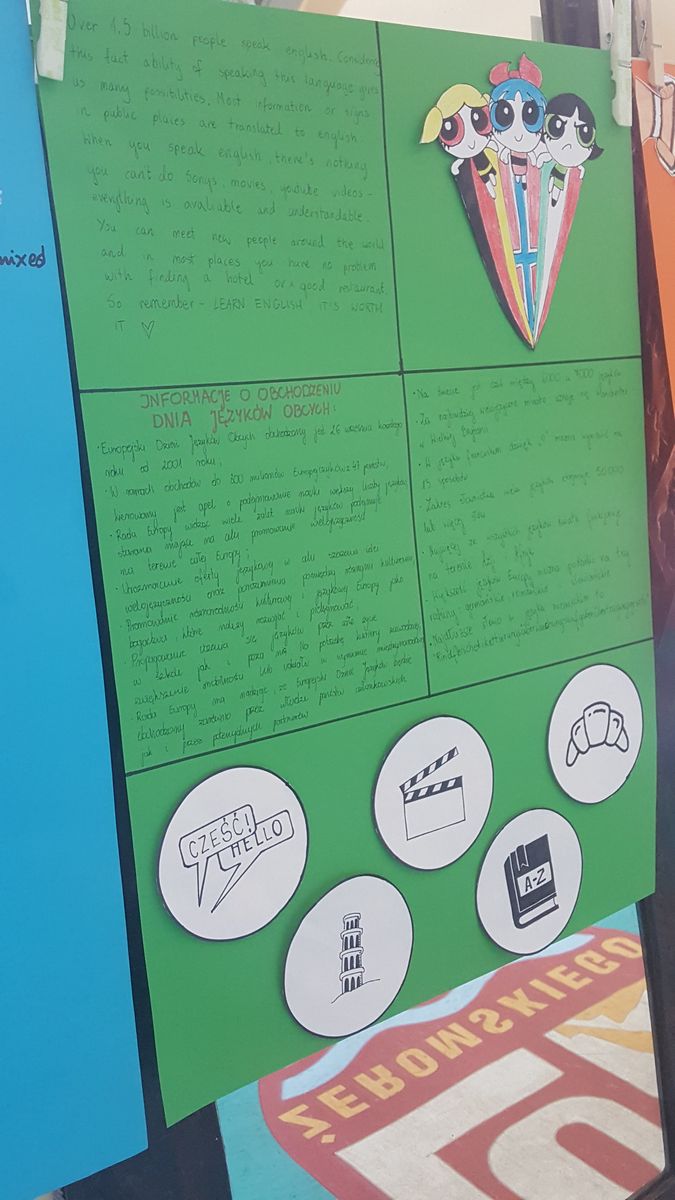 Over 1.5 billion people speak english. Considering
this fact ability of speaking this language gives
us many possitilities. Most information or signs
in public places are translated to english.
When you speak english, there's nothing
you can't do. Songs, movies, youtube videos -
everything is avaliable and understandable.
You can meet new people around the world
and in most places you have no problem
with finding a hotel or a good restaurant.
So remember - LEARN ENGLISH, IT'S WORTH
IT ♡
INFORMACJE O OBCHODZENIU
DNIA JĘZYKÓW OBCYCH:
• Europejski Dzień Języków Obcych obchodzony jest 26 września każdego
roku od 2001 roku;
• W ramach obchodów do 800 milionów Europejczyków z 47 państw,
kierowany jest apel o podejmowanie nauki większej liczby języków
• Rada Europy widząc wiele zalet nauki języków podejmuje
starania mające na celu promowanie wielojęzyczności
na terenie całej Europy;
• Urozmaicenie oferty językowej w celu szerzenia idei
wielojęzyczności oraz porozumienia pomiędzy różnymi kulturami;
• Promowanie różnorodności kulturowej i językowej Europy jako
bogactwa, które należy rozwijać i pielęgnować;
• Propagowanie uczenia się języków przez całe życie
w szkole jak i poza nią. Na potrzeby kariery zawodowej,
zwiększenie mobilności lub udziału w wymianie międzynarodowej
• Rada Europy ma nadzieję, że Europejski Dzień Języków będzie
obchodzony zarówno przez władze państw członkowskich
jak i przez potencjalnych partnerów
• Na świecie jest czas między 6000 a 7000 języków
• Za najbardziej
w Wielkiej Brytanii
• W języku francuskim dźwięk "o" można zapisać na
13 sposobów
• Zakres słownictwa wielu języków obejmuje 50.000
lub więcej słów
• Najwięcej ze wszystkich języków świata funkcjonuje
na terenie Azji i Afryki
• Większość języków Europy można podzielić na trzy
rodziny: germańskie, romańskie i słowiańskie
• Najdłuższe słowo w języku niemieckim to
CZEŚĆ!
HELLO
A-Z
mixed
ŻEROMSKIEGO